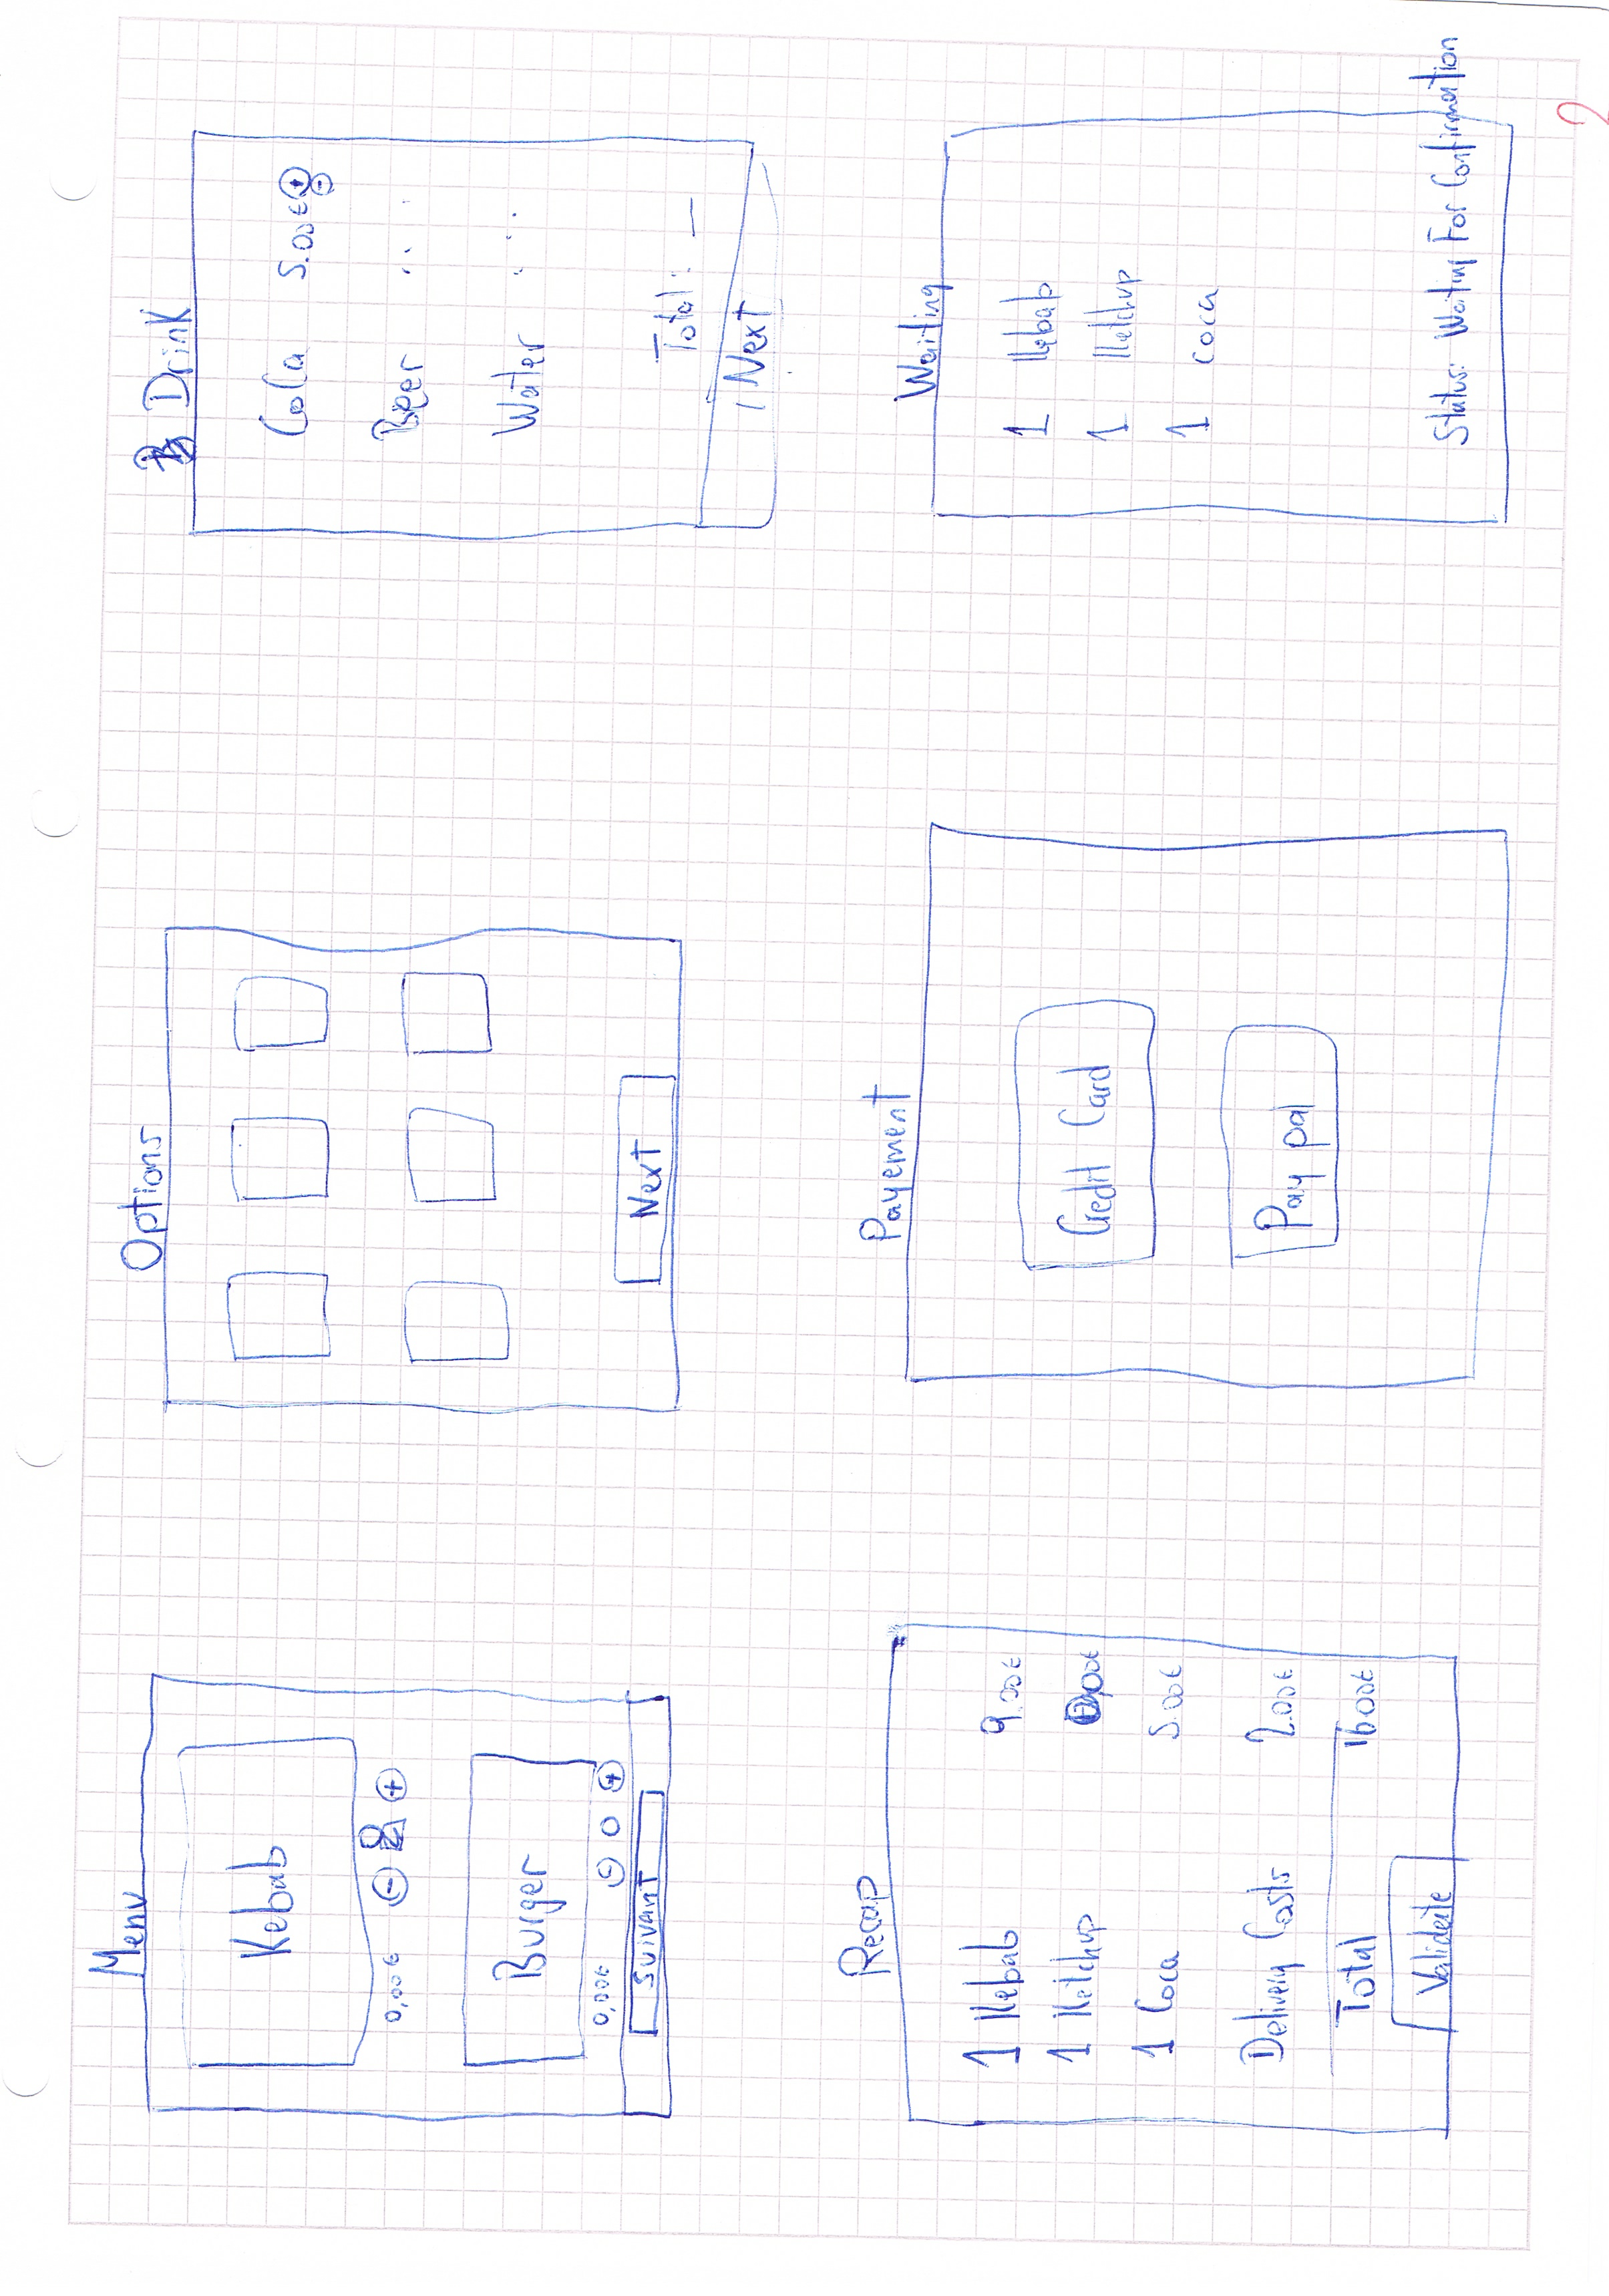 Menu
Kebab
0,00€ - +
Burger
0,00€ - 0 +
Suivant
Options
Next
Drink
CoCa 5.00€ +
-
Beer ....
Water ....
Total: _
Next
Recap
1 Kebab 9.00€
1 Ketchup 0,00€
1 Coca 5.00€
Delivery Costs 2.00€
Total 16.00€
Validate
Payement
Credit Card
Pay pal
Waiting
1 Kebab
1 Ketchup
1 coca
Status: Waiting For Confirmation
2